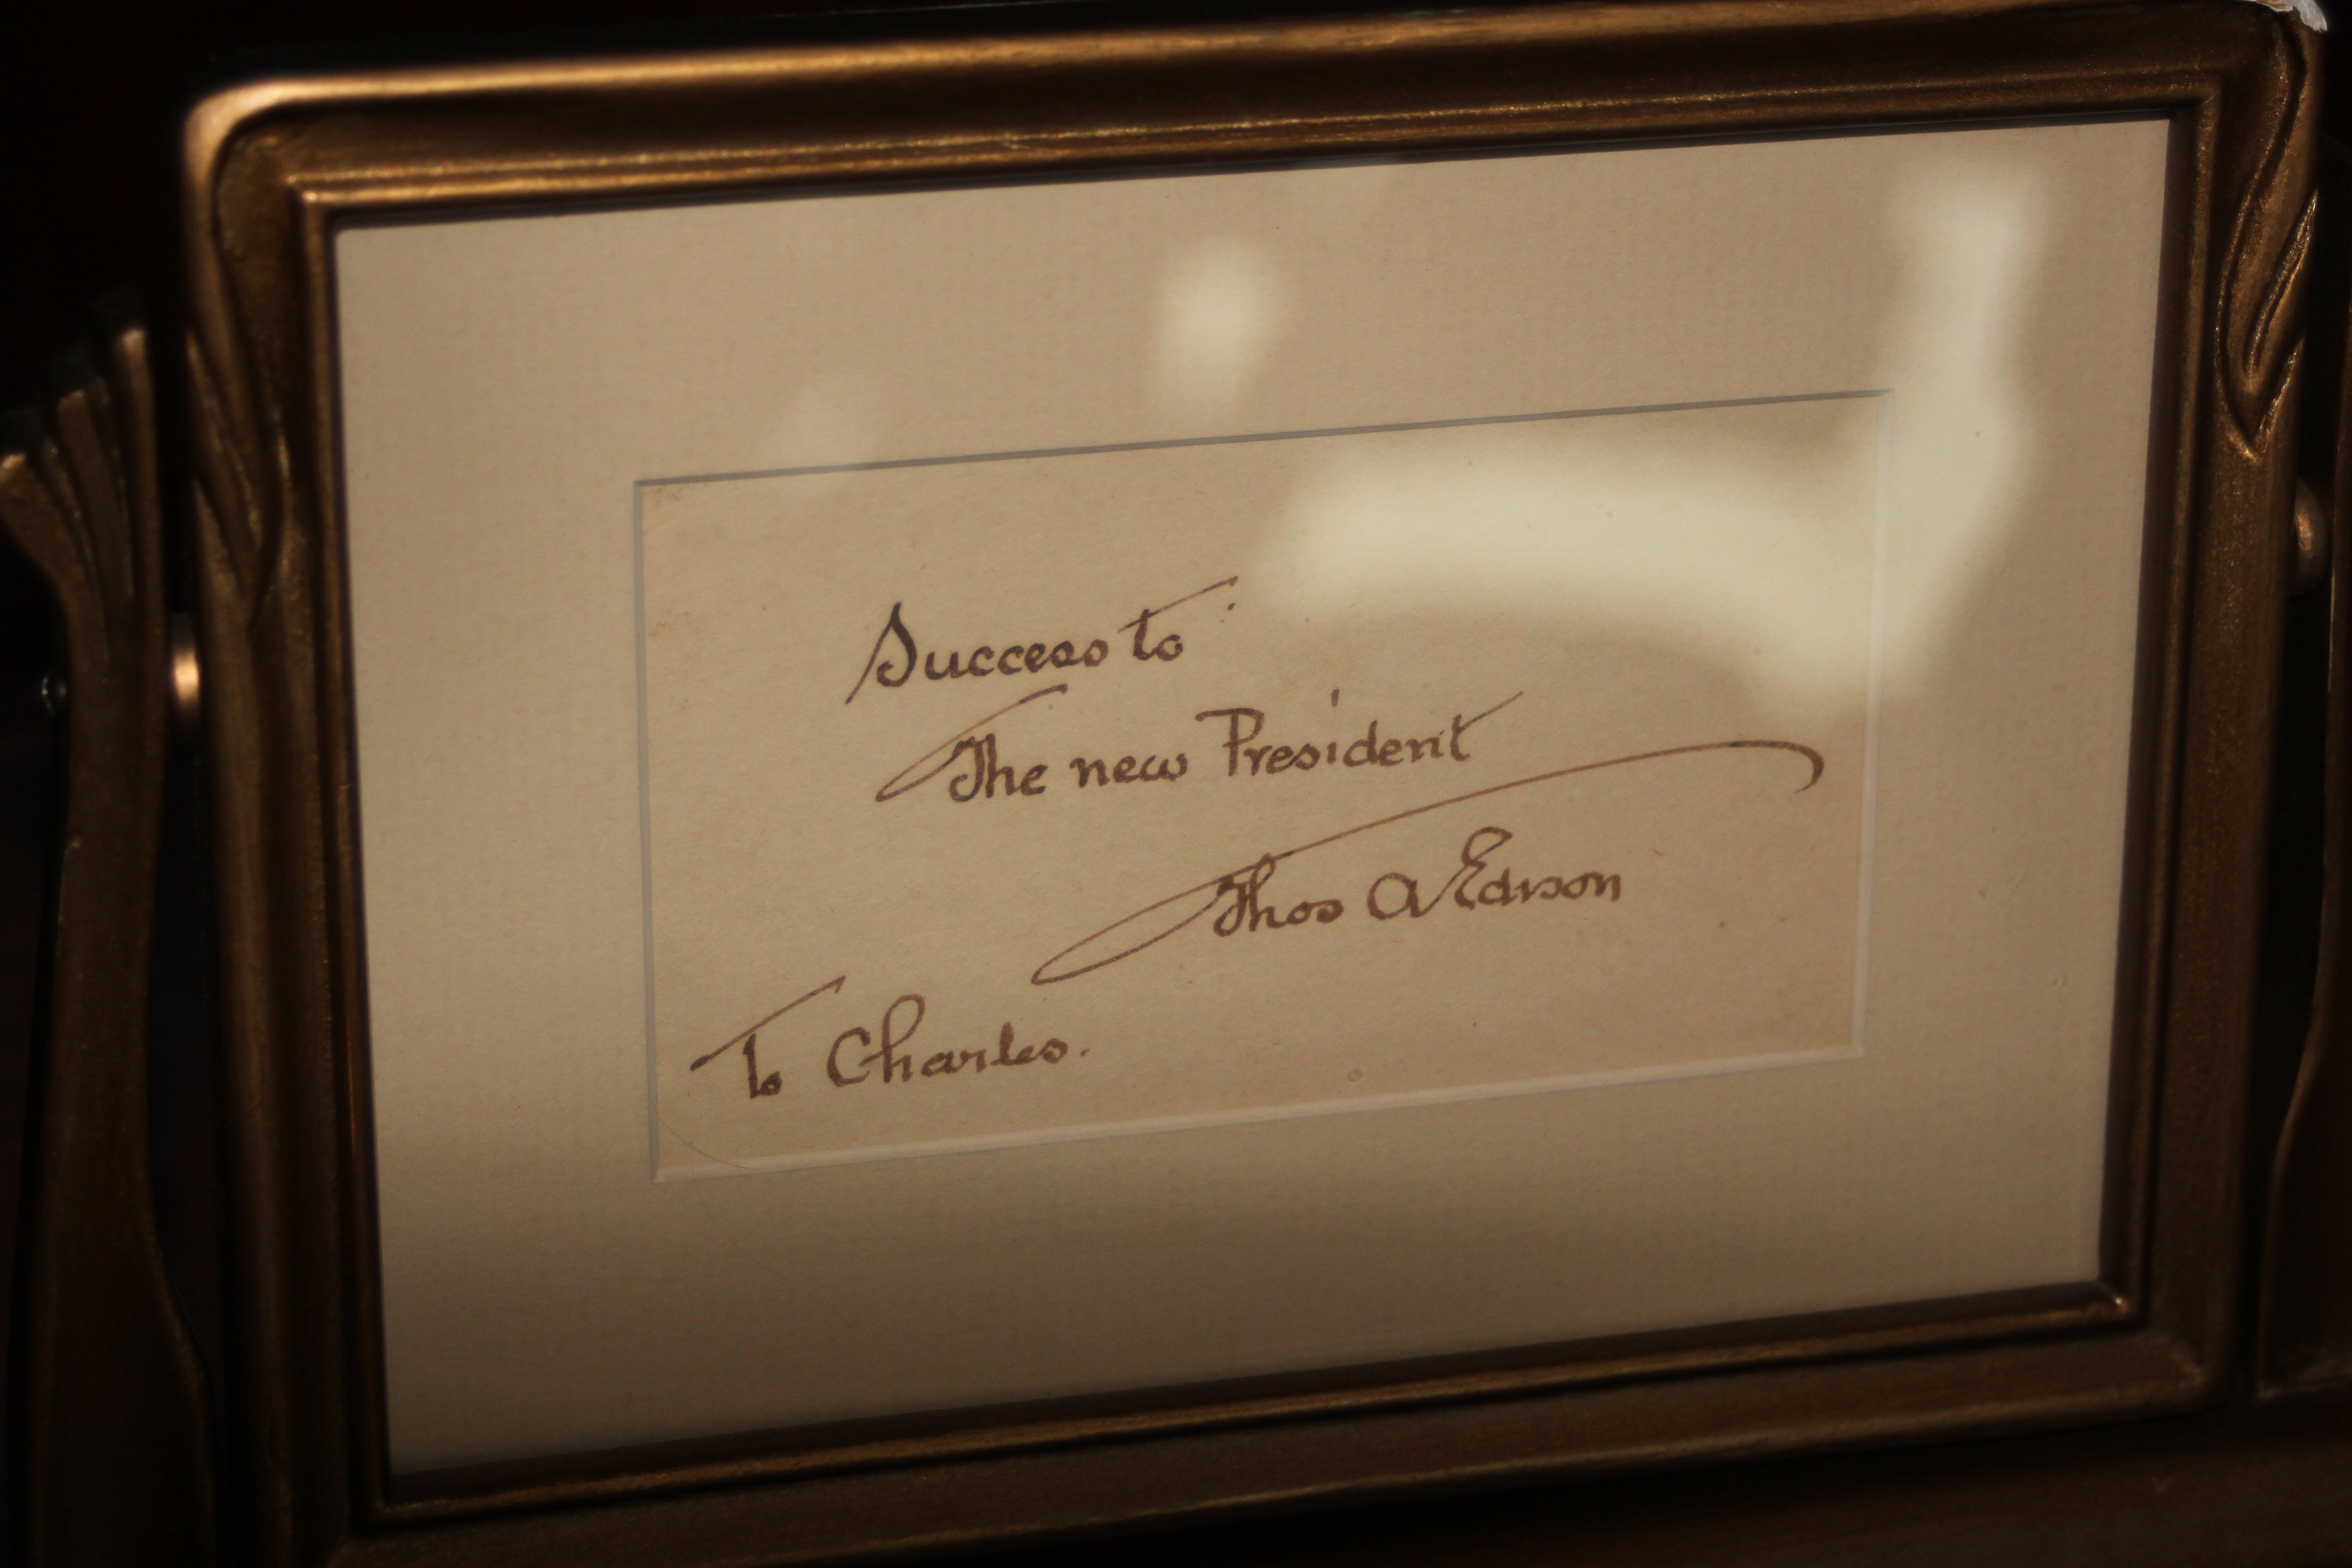 Success to
The new President
Thos A Edison
To Charles.